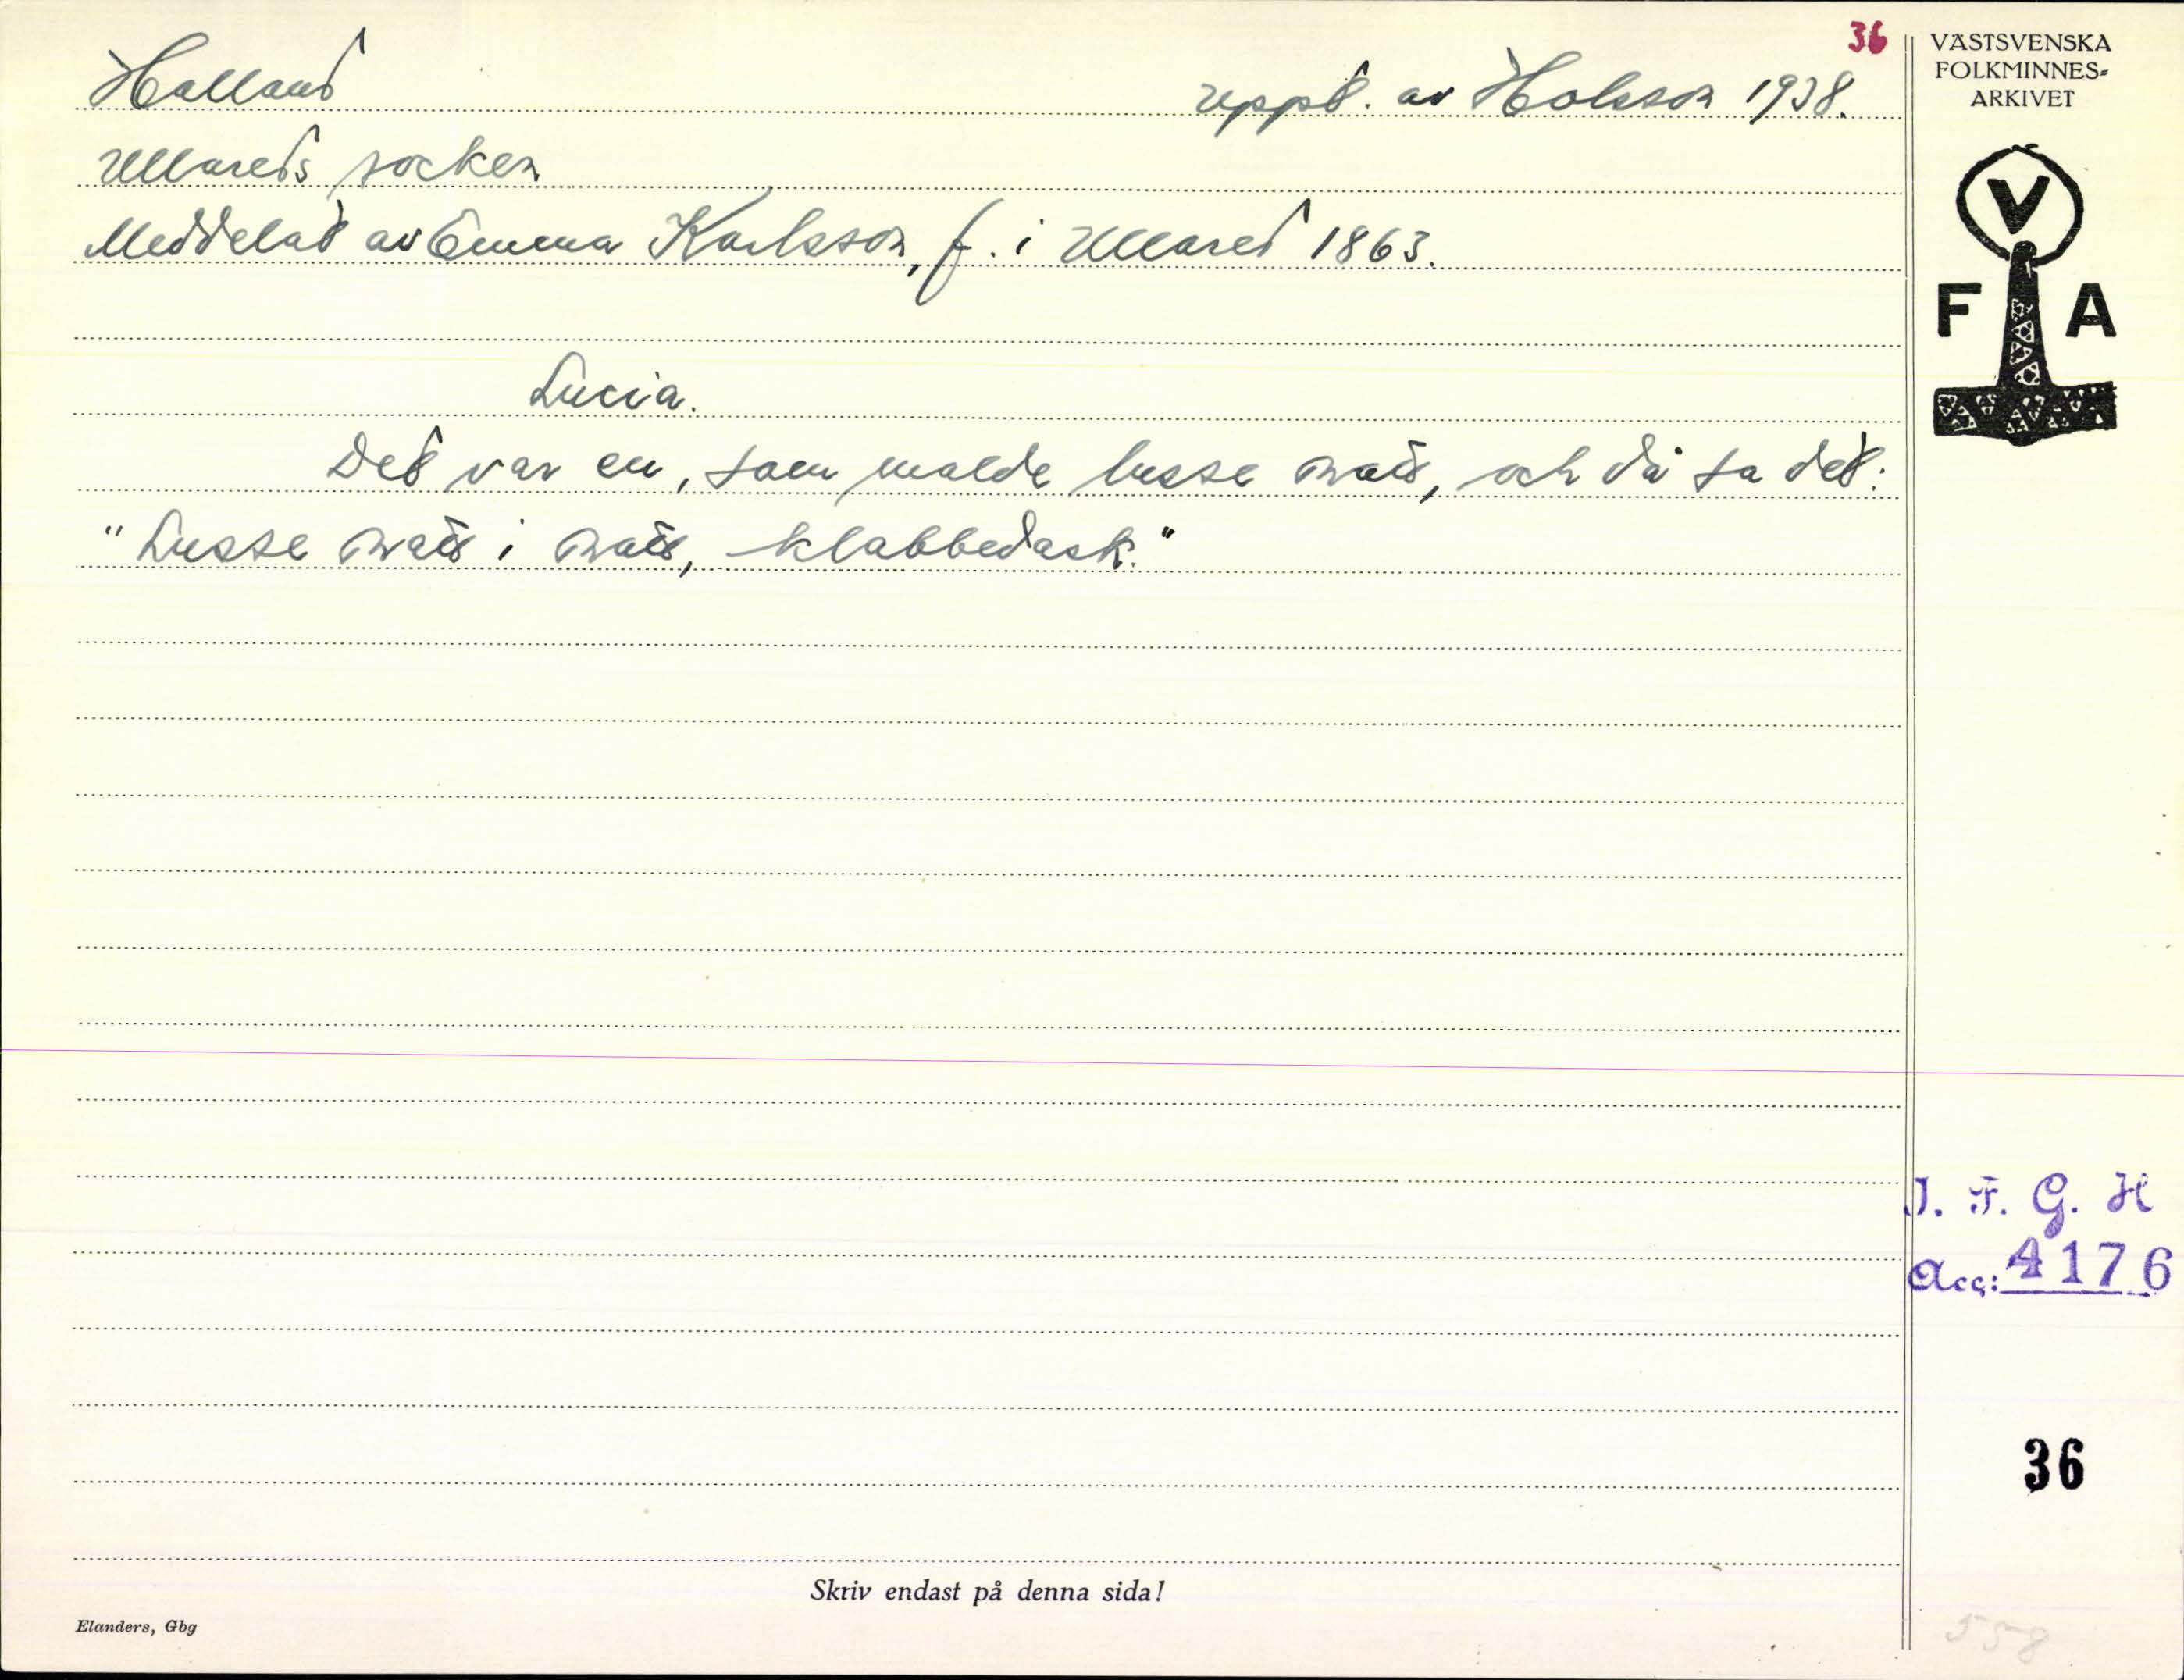 36
Halland
Uppt. av Holsson 1938.
Ullareds socken
Meddelat av Emma Karlsson, f. i Ullared 1863.
Lucia.
Det var en, som malde lusse natt, och då sa det:
"Lusse natt i natt, klabbedask."
VÄSTSVENSKA
FOLKMINNES-
ARKIVET
V
F A
I. F. G. H
Acc: 4176
36
Skriv endast på denna sida!
Elanders, Gbg
558